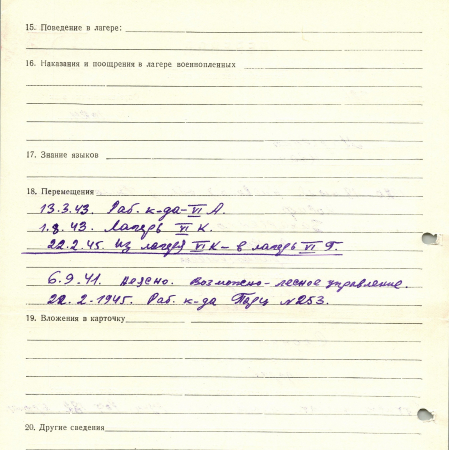 15. Поведение в лагере:
16. Наказания и поощрения в лагере военнопленных
17. Знание языков
18. Перемещения
13.3.43. Раб. к-да-VI А.
1.8.43. Лагерь VI К.
22.2.45. Из лагеря VI К - в лагерь VI Г.
6.9.41. Неясно. Возможно - лесное управление.
22.2.1945. Раб. к-да № 253.
19. Вложения в карточку
20. Другие сведения